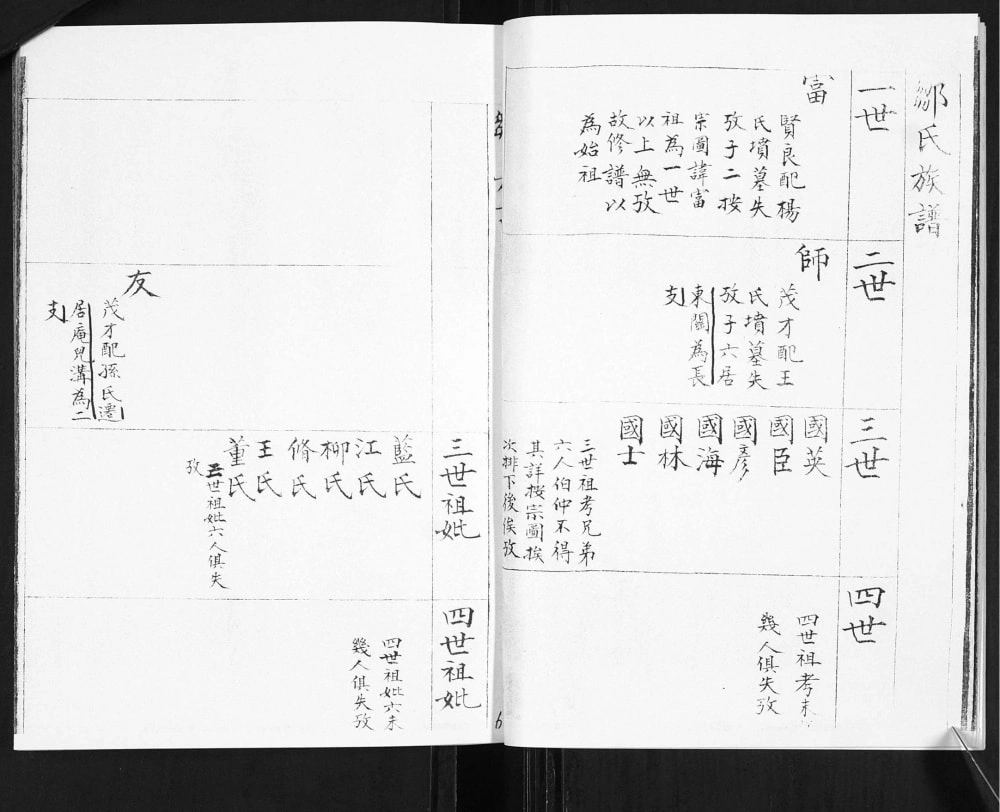 鄒氏族譜
一世
富
賢良配楊
氏墳墓失
攷子二按
宗圖諱富
祖為一世
以上無攷
故修譜以
為始祖
二世
師
茂才配王
氏墳墓失
攷子六居
東關為長
支
三世
國英
國臣
國彥
國海
國林
國士
三世祖考兄弟
六人伯仲不得
其詳按宗圖挨
次排下後俟攷
四世
四世祖考未
幾人俱失攷
友
茂才配孫氏遷
居庵兒溝為二
支
三世祖妣
藍氏
江氏
柳氏
脩氏
王氏
董氏
三世祖妣六人俱失
攷
四世祖妣
四世祖妣六未
幾人俱失攷
6